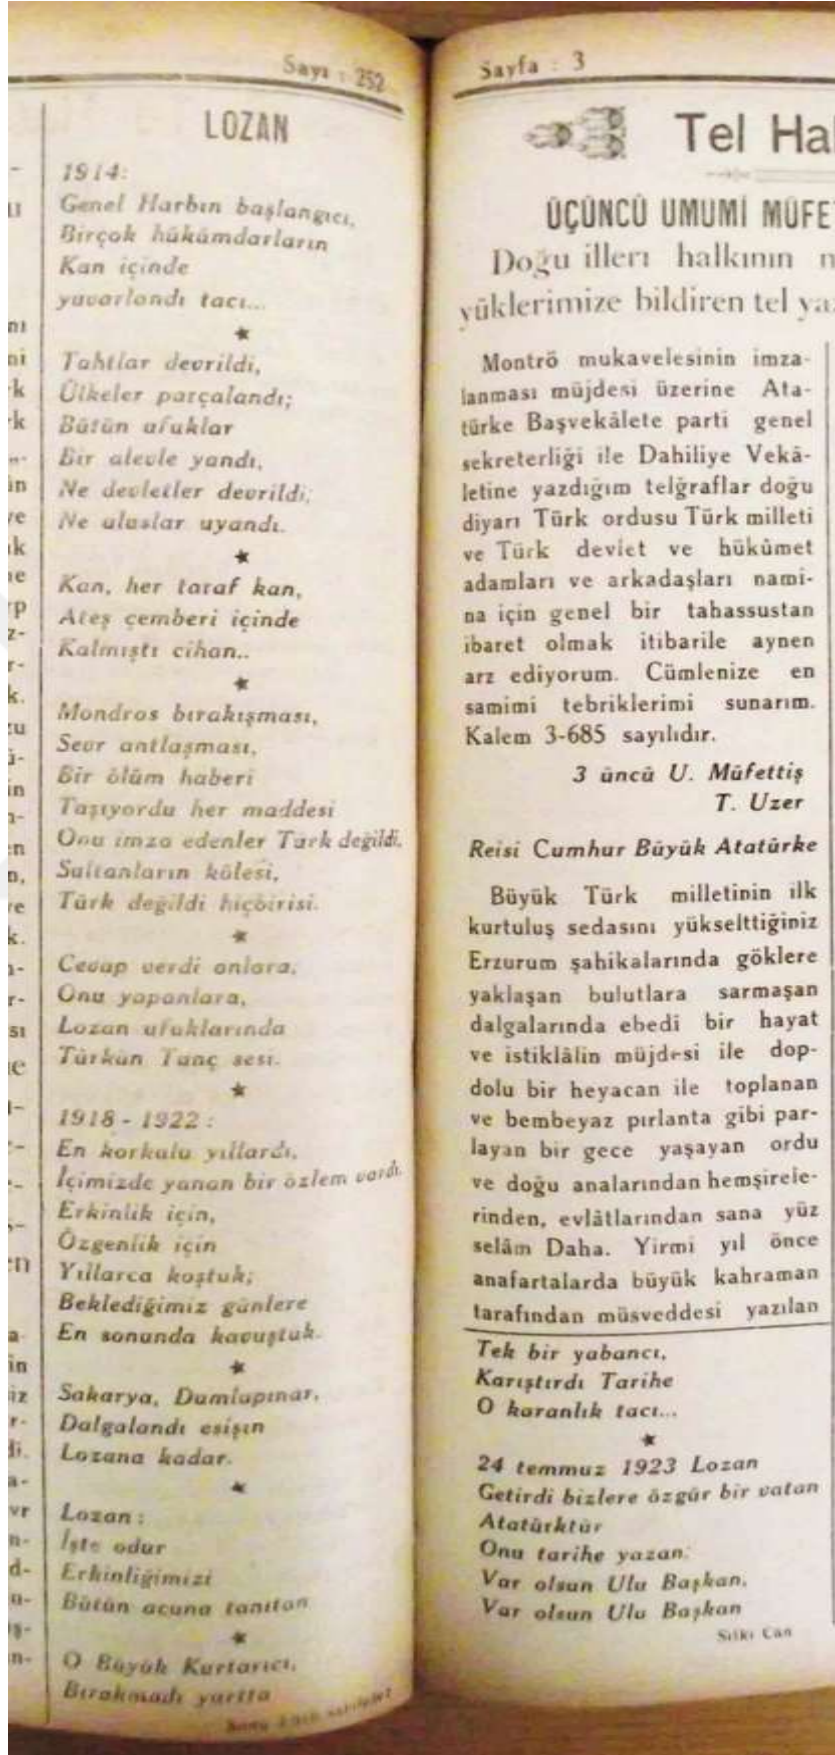 Sayı : 252
LOZAN
1914:
Genel Harbın başlangıcı,
Birçok hükümdarların
Kan içinde
yuvarlandı tacı...
★
Tahtlar devrildi,
Ülkeler parçalandı;
Bütün ufuklar
Bir alevle yandı,
Ne devletler devrildi;
Ne uluslar uyandı.
★
Kan, her taraf kan,
Ateş çemberi içinde
Kalmıştı cihan..
★
Mondros bırakışması,
Sevr antlaşması,
Bir ölüm haberi
Taşıyordu her maddesi
Onu imza edenler Türk değildi,
Sultanların kölesi,
Türk değildi hiçbirisi.
★
Cevap verdi onlara,
Onu yapanlara,
Lozan ufuklarında
Türkün Tunç sesi.
★
1918 - 1922 :
En korkulu yıllardı,
İçimizde yanan bir özlem vardı.
Erkinlik için,
Özgenlik için
Yıllarca koştuk;
Beklediğimiz günlere
En sonunda kavuştuk.
★
Sakarya, Dumlupınar,
Dalgalandı esişin
Lozana kadar.
★
Lozan :
İşte odur
Erkinliğimizi
Bütün acuna tanıtan
★
O Büyük Kurtarıcı,
Bırakmadı yurtta
Sonu
Sayfa : 3
Tel Ha
ÜÇÜNCÜ UMUMİ MÜFE
Doğu illeri halkının
yüklerimize bildiren tel ya
Montrö mukavelesinin imza-
lanması müjdesi üzerine Ata-
türke Başvekâlete parti genel
sekreterliği ile Dahiliye Vekâ-
letine yazdığım telğraflar doğu
diyarı Türk ordusu Türk milleti
ve Türk devlet ve hükûmet
adamları ve arkadaşları nami-
na için genel bir tahassustan
ibaret olmak itibarile aynen
arz ediyorum. Cümlenize en
samimi tebriklerimi sunarım.
Kalem 3-685 sayılıdır.
3 üncü U. Müfettiş
T. Uzer
Reisi Cumhur Büyük Atatürke
Büyük Türk milletinin ilk
kurtuluş sedasını yükselttiğiniz
Erzurum şahikalarında göklere
yaklaşan bulutlara sarmaşan
dalgalarında ebedi bir hayat
ve istiklâlin müjdesi ile dop-
dolu bir heyacan ile toplanan
ve bembeyaz pırlanta gibi par-
layan bir gece yaşayan ordu
ve doğu analarından hemşirele-
rinden, evlâtlarından sana yüz
selâm Daha. Yirmi yıl önce
anafartalarda büyük kahraman
tarafından müsveddesi yazılan
Tek bir yabancı,
Karıştırdı Tarihe
O karanlık tacı...
★
24 temmuz 1923 Lozan
Getirdi bizlere özgür bir vatan
Atatürktür
Onu tarihe yazan;
Var olsun Ulu Başkan,
Var olsun Ulu Başkan
Sıtkı Can